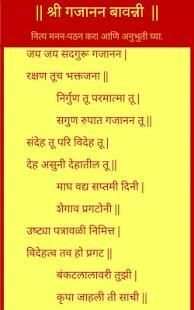 || श्री गजानन बावन्नी ||
नित्य मनन-पठन करा आणि अनुभूती घ्या.
जय जय सदगुरू गजानन |
रक्षण तूच भक्तजना ||
निर्गुण तू परमात्मा तू |
सगुण रुपात गजानन तू ||
संदेह तू परि विदेह तू |
देह असुनी देहातील तू ||
माघ वद्य सप्तमी दिनी |
शेगाव प्रगटोनी ||
उष्ट्या पत्रावळी निमित्त |
विदेहत्व तव हो प्रगट ||
बंकटलालावरी तुझी |
कृपा जाहली ती साची ||